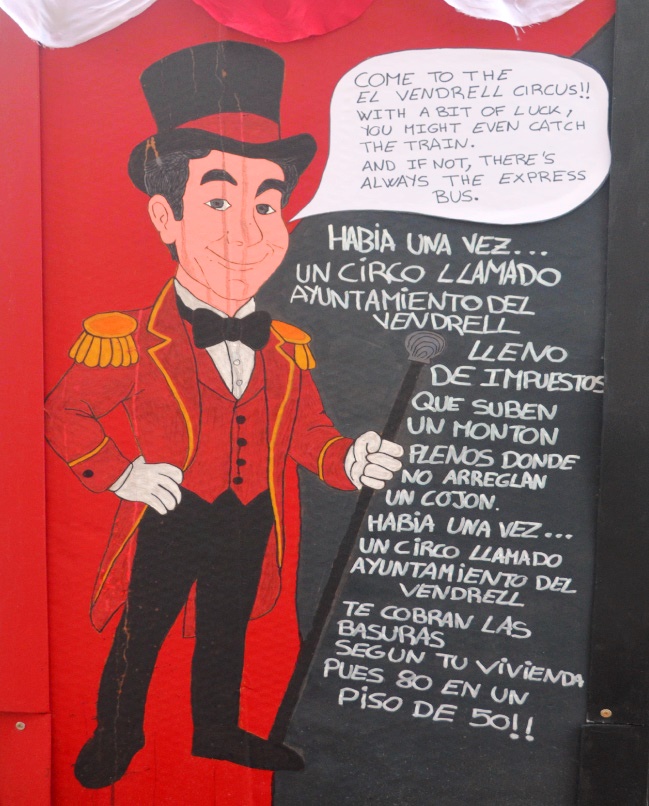 COME TO THE
EL VENDRELL CIRCUS!!
WITH A BIT OF LUCK,
YOU MIGHT EVEN CATCH
THE TRAIN.
AND IF NOT, THERE'S
ALWAYS THE EXPRESS
BUS.
HABIA UNA VEZ...
UN CIRCO LLAMADO
AYUNTAMIENTO DEL
VENDRELL
LLENO
DE IMPUESTOS
QUE SUBEN
UN MONTON
PLENOS DONDE
NO ARREGLAN
UN COJON.
HABIA UNA VEZ...
UN CIRCO LLAMADO
AYUNTAMIENTO DEL
VENDRELL
TE COBRAN LAS
BASURAS
SEGUN TU VIVIENDA
PUES 80 EN UN
PISO DE 50!!